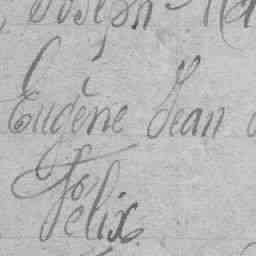 Joseph
Eugène Jean
Félix